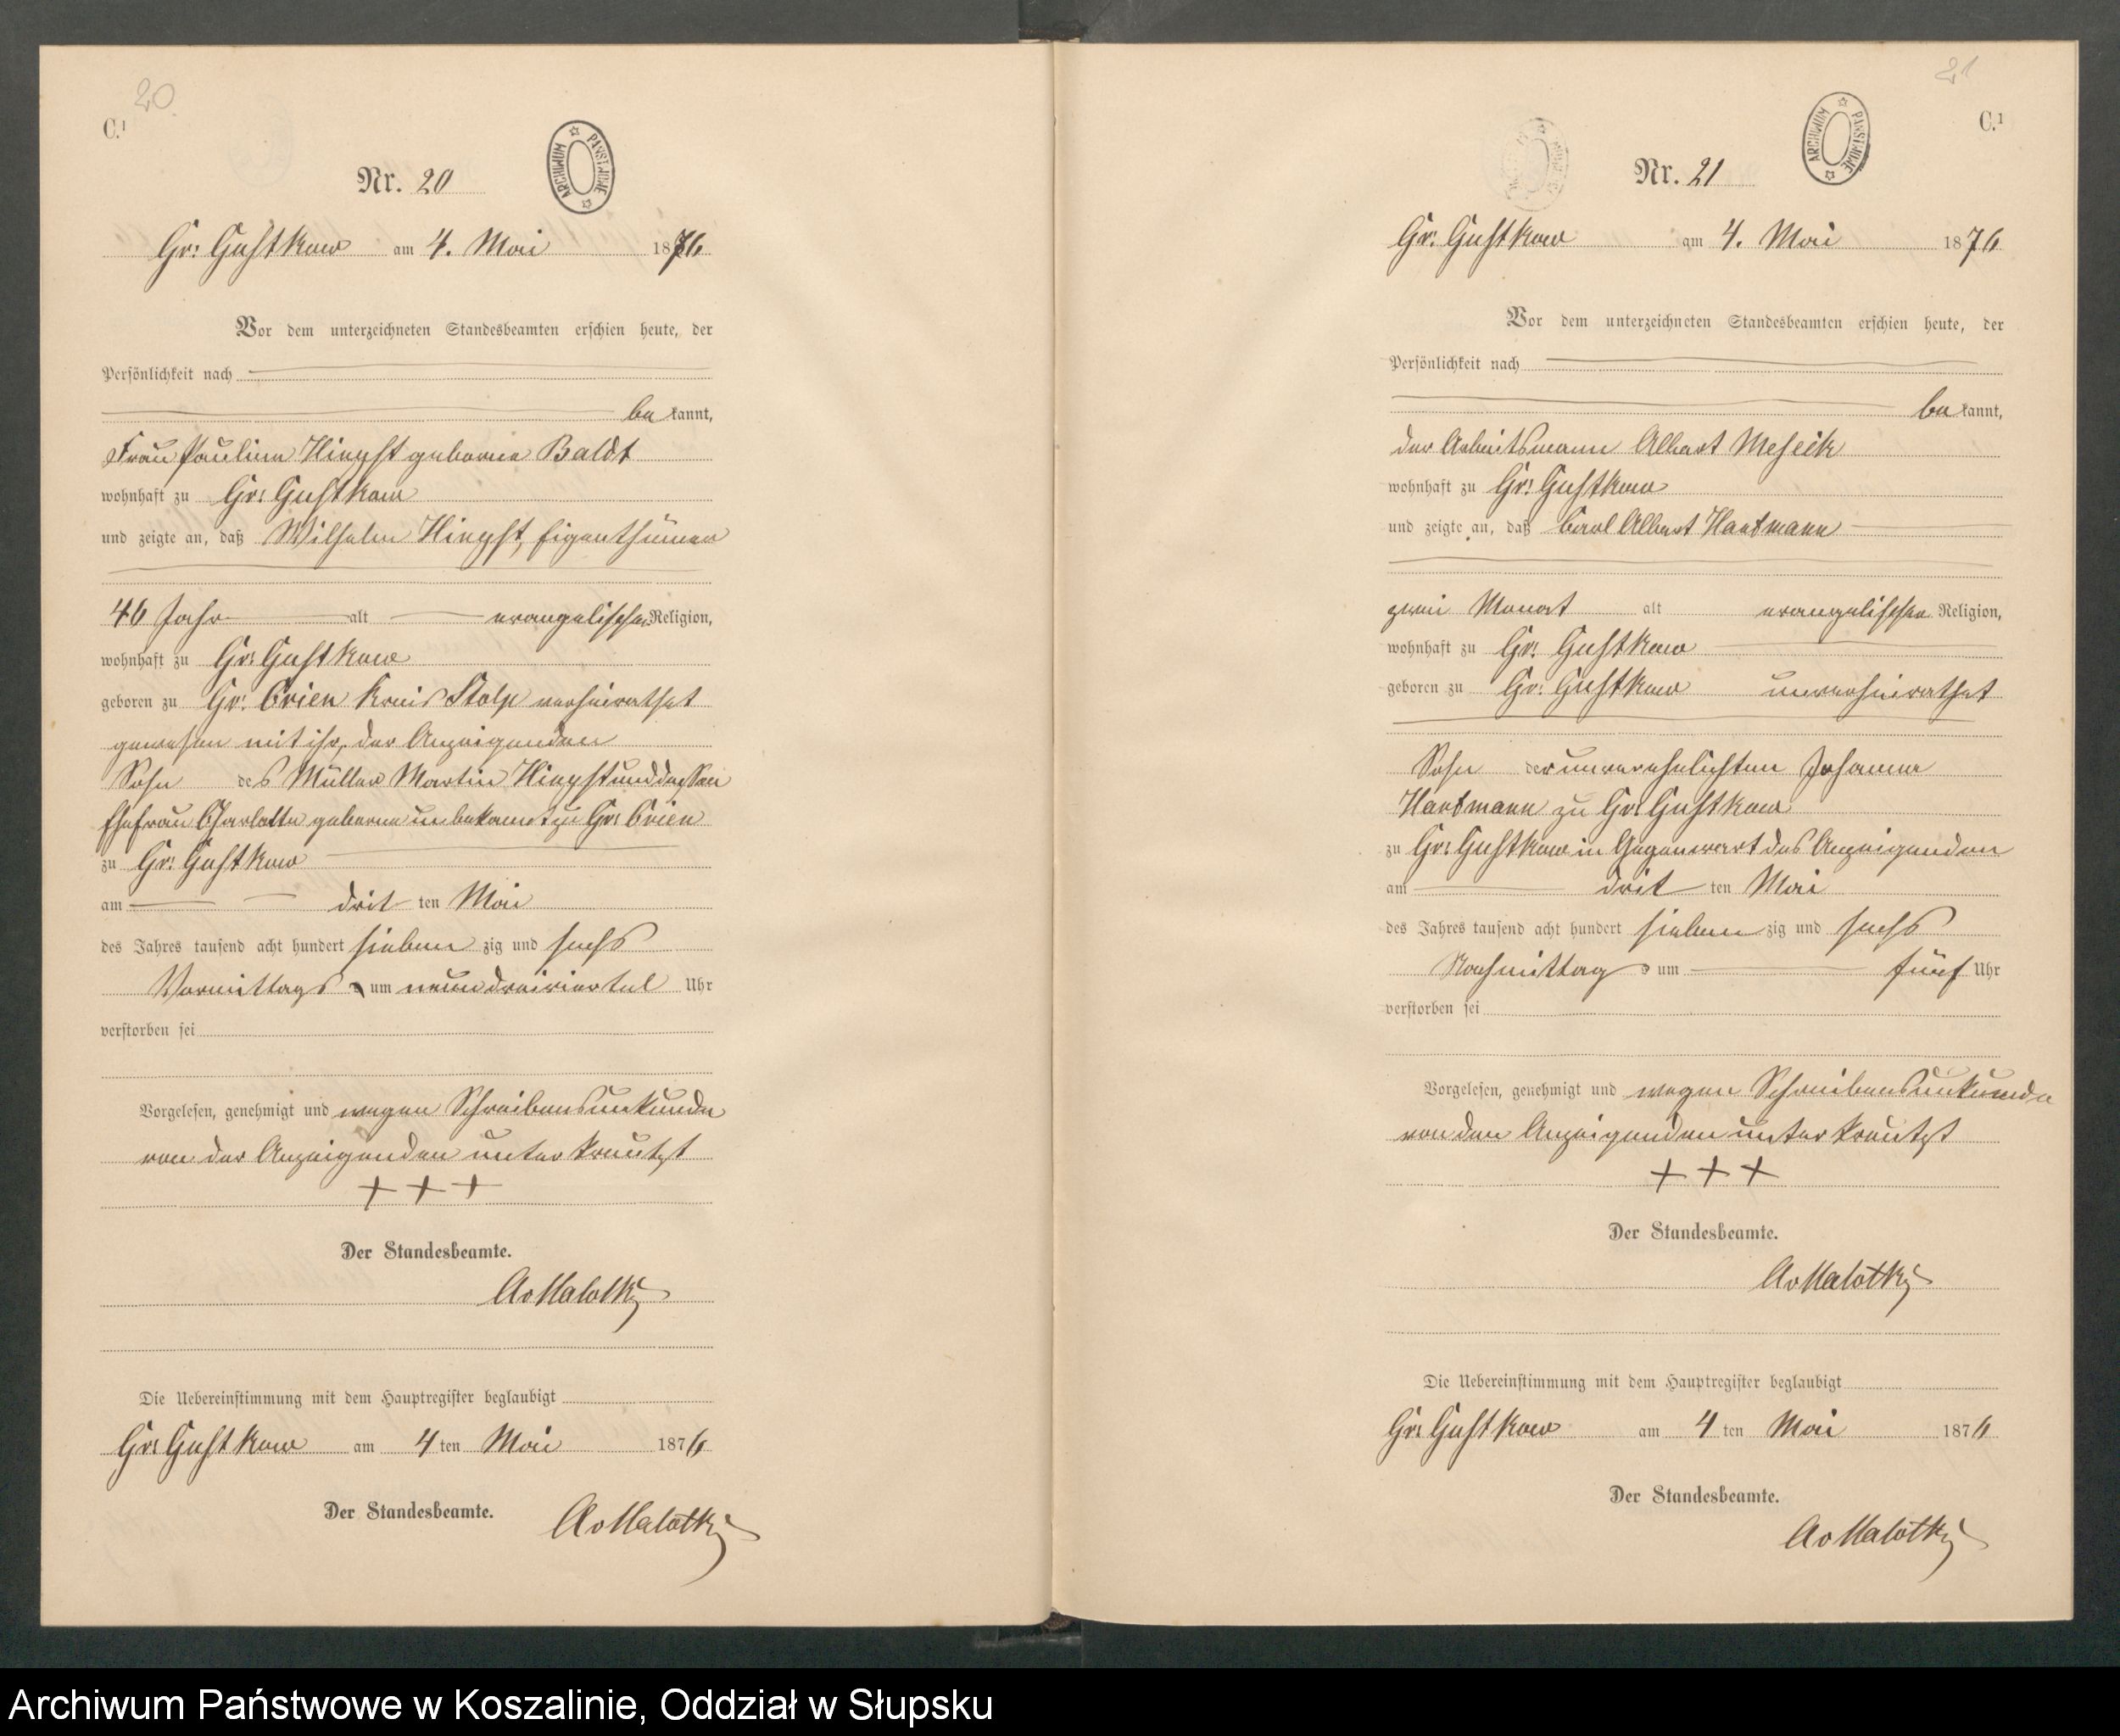 20
C.1
ARCHIWUM PAŃSTWOWE
Nr. 20
Gr: Gustkow am 4. Mai 1876
Vor dem unterzeichneten Standesbeamten erschien heute, der
Persönlichkeit nach
be kannt,
Frau Pauline Hingst geborne Baldt
wohnhaft zu Gr: Gustkow
und zeigte an, daß Wilhelm Hingst, Eigenthümer
46 Jahr alt evangelischer Religion,
wohnhaft zu Gr: Gustkow
geboren zu Gr: Crien Kreis Stolp verheirathet
gewesen mit ihr, der Anzeigenden
Sohn des Müller Martin Hingst und dessen
Ehefrau Charlotte geborne unbekannt zu Gr: Crien
zu Gr: Gustkow
am drit ten Mai
des Jahres tausend acht hundert sieben zig und sechs
Vormittags um neundreiviertel Uhr
verstorben sei
Vorgelesen, genehmigt und wegen Schreibensunkunde
von der Anzeigenden unterkreutzt
+ + +
Der Standesbeamte.
AvMalotky
Die Uebereinstimmung mit dem Hauptregister beglaubigt
Gr: Gustkow am 4 ten Mai 1876
Der Standesbeamte. AvMalotky
21
C.1
ARCHIWUM PAŃSTWOWE
Nr. 21
Gr: Gustkow am 4. Mai 1876
Vor dem unterzeichneten Standesbeamten erschien heute, der
Persönlichkeit nach
be kannt,
der Arbeitsmann Albert Meseck
wohnhaft zu Gr: Gustkow
und zeigte an, daß Carl Albert Hartmann
zwei Monat alt evangelischer Religion,
wohnhaft zu Gr: Gustkow
geboren zu Gr: Gustkow unverheirathet
Sohn der unverehelichten Johanne
Hartmann zu Gr: Gustkow
zu Gr: Gustkow in Gegenwart des Anzeigenden
am drit ten Mai
des Jahres tausend acht hundert sieben zig und sechs
Nachmittag s um fünf Uhr
verstorben sei
Vorgelesen, genehmigt und wegen Schreibensunkunde
von dem Anzeigenden unterkreutzt
+ + +
Der Standesbeamte.
AvMalotky
Die Uebereinstimmung mit dem Hauptregister beglaubigt
Gr: Gustkow am 4 ten Mai 1876
Der Standesbeamte.
AvMalotky
Archiwum Państwowe w Koszalinie, Oddział w Słupsku